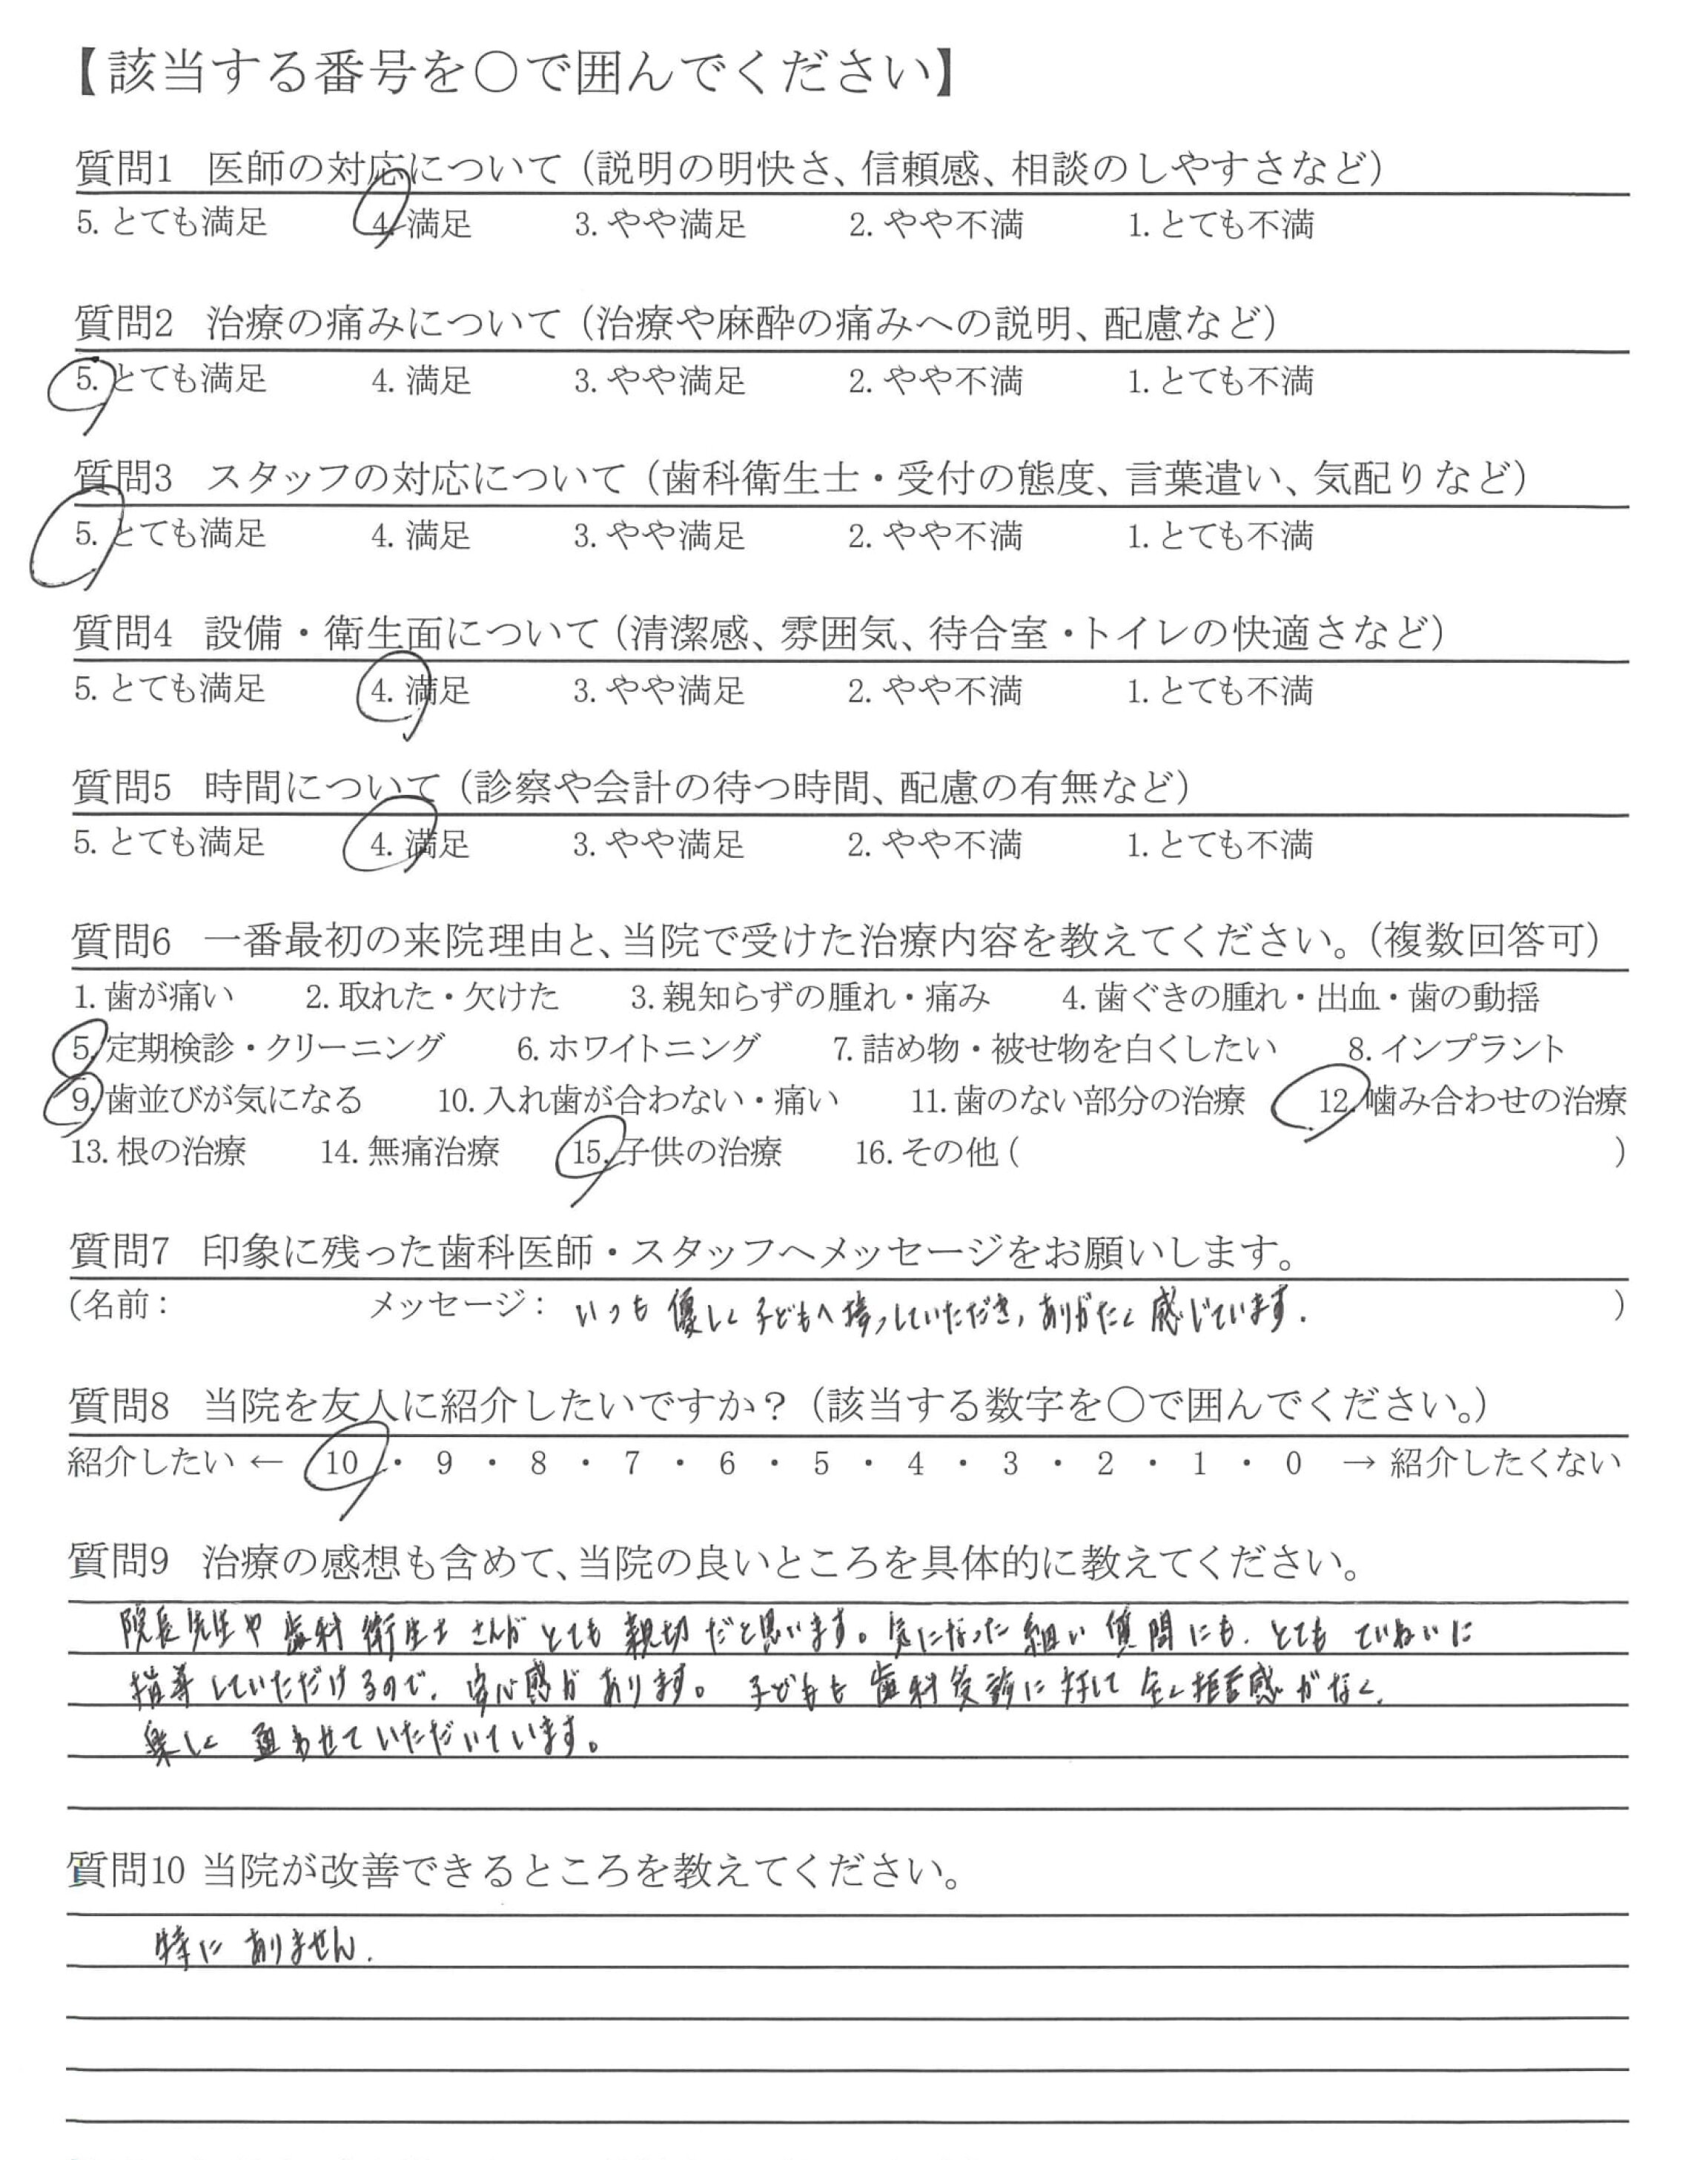 【該当する番号を○で囲んでください】
質問1 医師の対応について（説明の明快さ、信頼感、相談のしやすさなど）
5. とても満足 4. 満足 3. やや満足 2. やや不満 1. とても不満
質問2 治療の痛みについて（治療や麻酔の痛みへの説明、配慮など）
5. とても満足 4. 満足 3. やや満足 2. やや不満 1. とても不満
質問3 スタッフの対応について（歯科衛生士・受付の態度、言葉遣い、気配りなど）
5. とても満足 4. 満足 3. やや満足 2. やや不満 1. とても不満
質問4 設備・衛生面について（清潔感、雰囲気、待合室・トイレの快適さなど）
5. とても満足 4. 満足 3. やや満足 2. やや不満 1. とても不満
質問5 時間について（診察や会計の待つ時間、配慮の有無など）
5. とても満足 4. 満足 3. やや満足 2. やや不満 1. とても不満
質問6 一番最初の来院理由と、当院で受けた治療内容を教えてください。（複数回答可）
1. 歯が痛い 2. 取れた・欠けた 3. 親知らずの腫れ・痛み 4. 歯ぐきの腫れ・出血・歯の動揺
5. 定期検診・クリーニング 6. ホワイトニング 7. 詰め物・被せ物を白くしたい 8. インプラント
9. 歯並びが気になる 10. 入れ歯が合わない・痛い 11. 歯のない部分の治療 12. 噛み合わせの治療
13. 根の治療 14. 無痛治療 15. 子供の治療 16. その他（ ）
質問7 印象に残った歯科医師・スタッフへメッセージをお願いします。
（名前： メッセージ： いつも優しく子どもへ接っしていただき、ありがたく感じています. ）
質問8 当院を友人に紹介したいですか？（該当する数字を○で囲んでください。）
紹介したい ← 10 ・ 9 ・ 8 ・ 7 ・ 6 ・ 5 ・ 4 ・ 3 ・ 2 ・ 1 ・ 0 → 紹介したくない
質問9 治療の感想も含めて、当院の良いところを具体的に教えてください。
院長先生や歯科衛生士さんがとても親切だと思います。気になった細い質問にも、とてもていねいに
指導していただけるので、安心感があります。子どもも歯科受診に対して全く拒否感がなく、
楽しく通わせていただいています。
質問10 当院が改善できるところを教えてください。
特にありません.